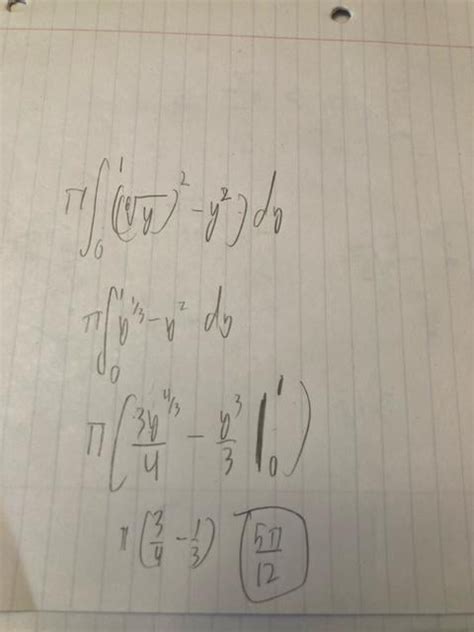 π∫₀¹ ((⁶√y)² - y²) dy
π∫₀¹ y^1/3 - y² dy
π(3y^4/3/4 - y³/3 |₀¹)
π(3/4 - 1/3) 5π/12